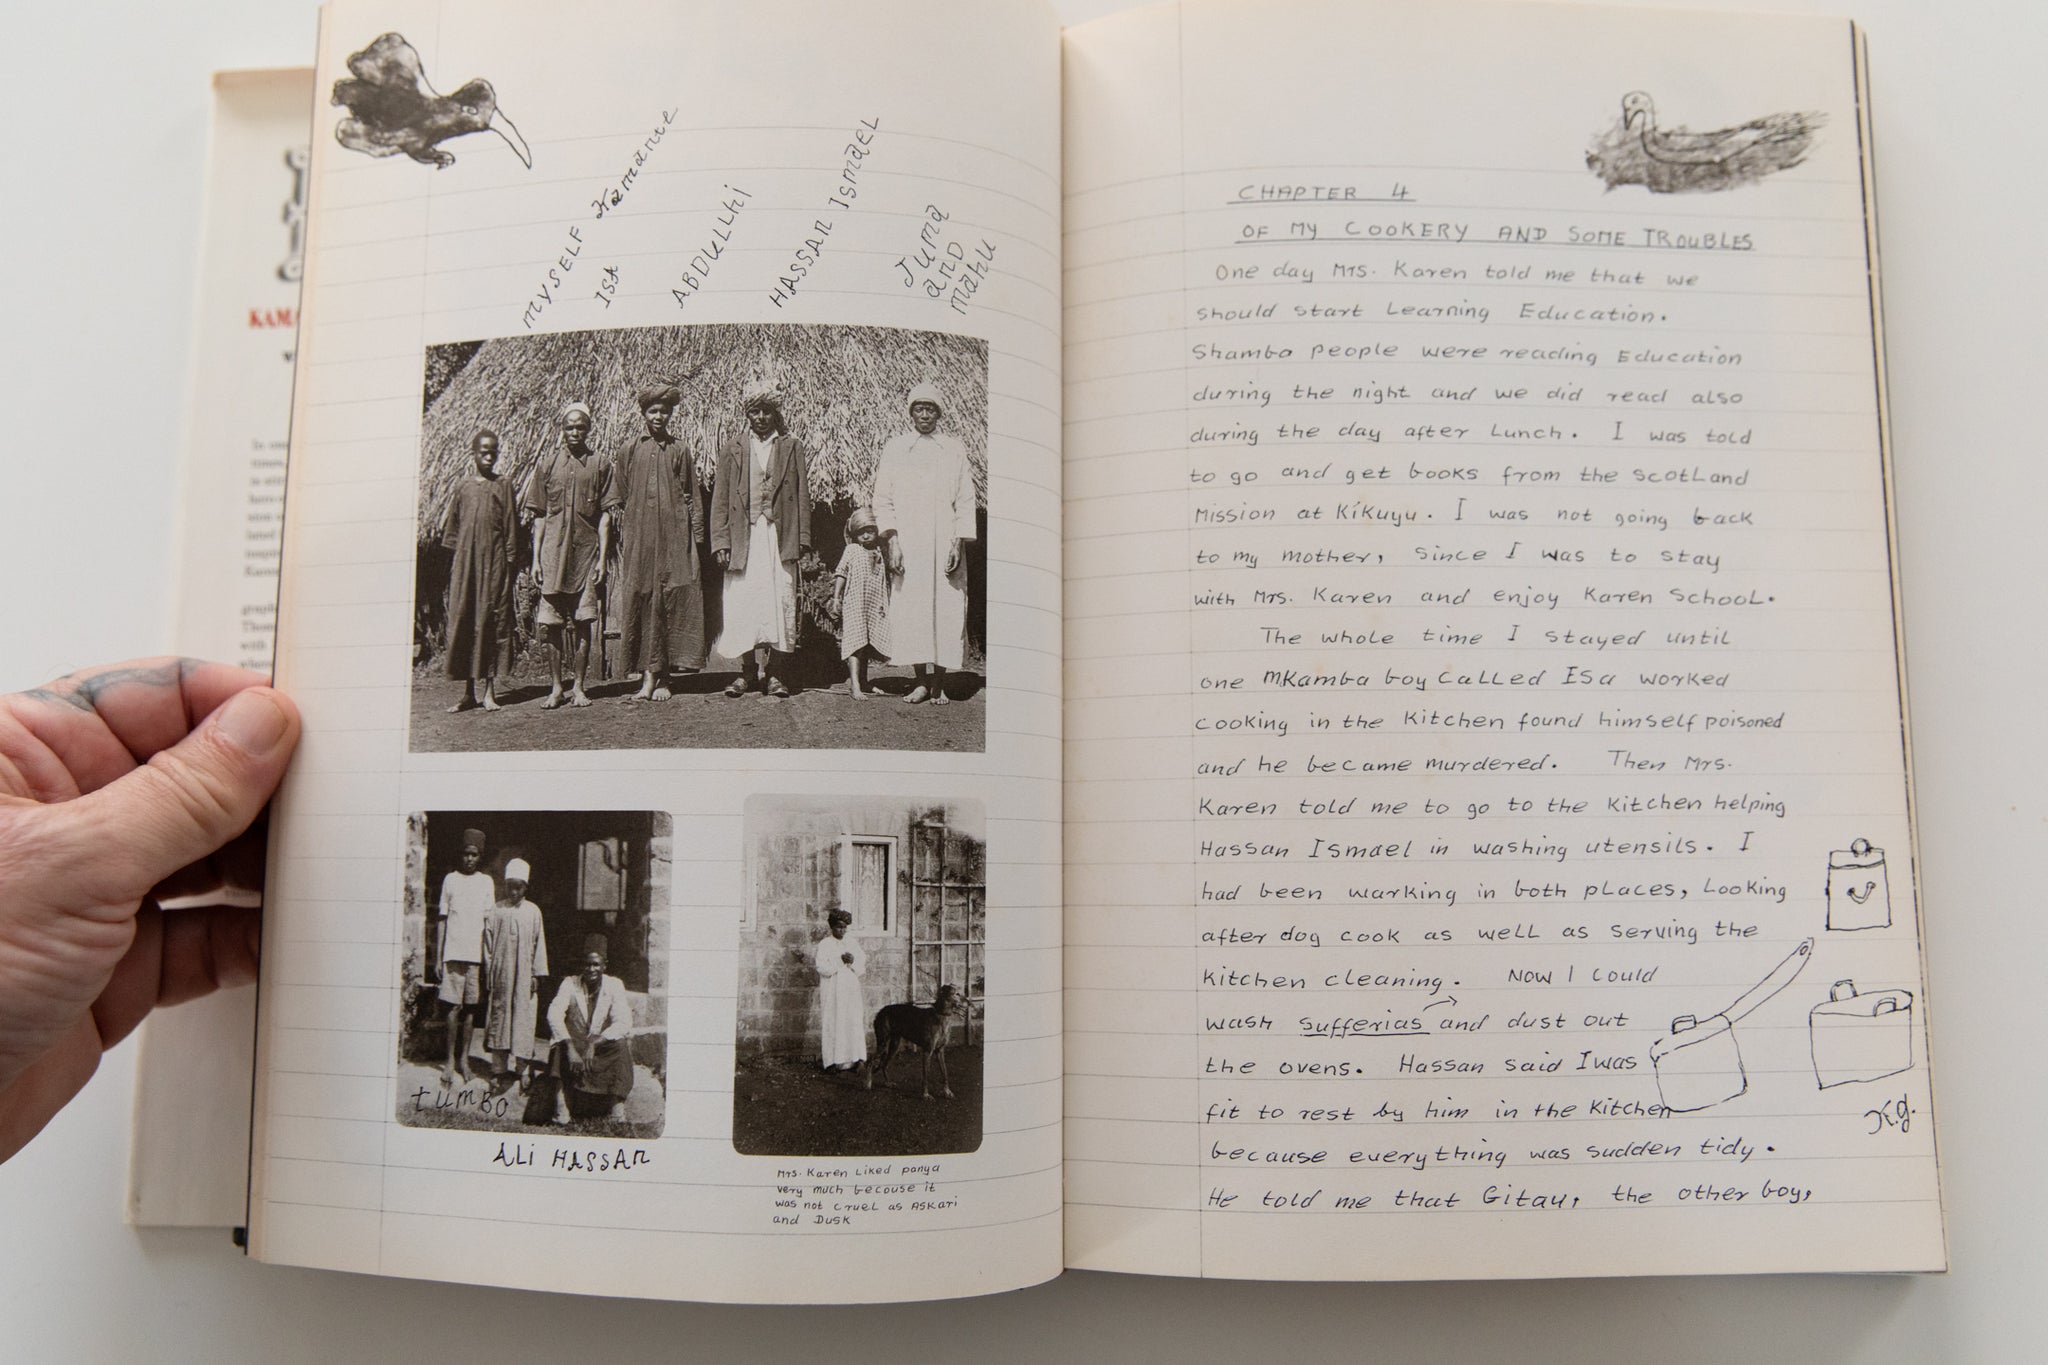 KAMA
MYSELF Kamante
ISA
ABDULLHI
HASSAN ISMAEL
JUMA
AND
MAHU
TUMBO
ALI HASSAN
Mrs. Karen Liked panya
very much becouse it
was not cruel as ASKARI
and DUSK
CHAPTER 4
OF MY COOKERY AND SOME TROUBLES
One day Mrs. Karen told me that we
should start Learning Education.
Shamba people were reading Education
during the night and we did read also
during the day after Lunch. I was told
to go and get books from the Scotland
Mission at Kikuyu. I was not going back
to my mother, since I was to stay
with Mrs. Karen and enjoy Karen School.
The whole time I stayed until
one mKamba boy called ISa worked
cooking in the kitchen found himself poisoned
and he became murdered. Then Mrs.
Karen told me to go to the kitchen helping
Hassan Ismael in washing utensils. I
had been warking in both places, Looking
after dog cook as well as serving the
kitchen cleaning. Now I could
wash sufferias and dust out
the ovens. Hassan said I was
fit to rest by him in the kitchen
because everything was sudden tidy.
He told me that Gitau, the other boy,
K.g.